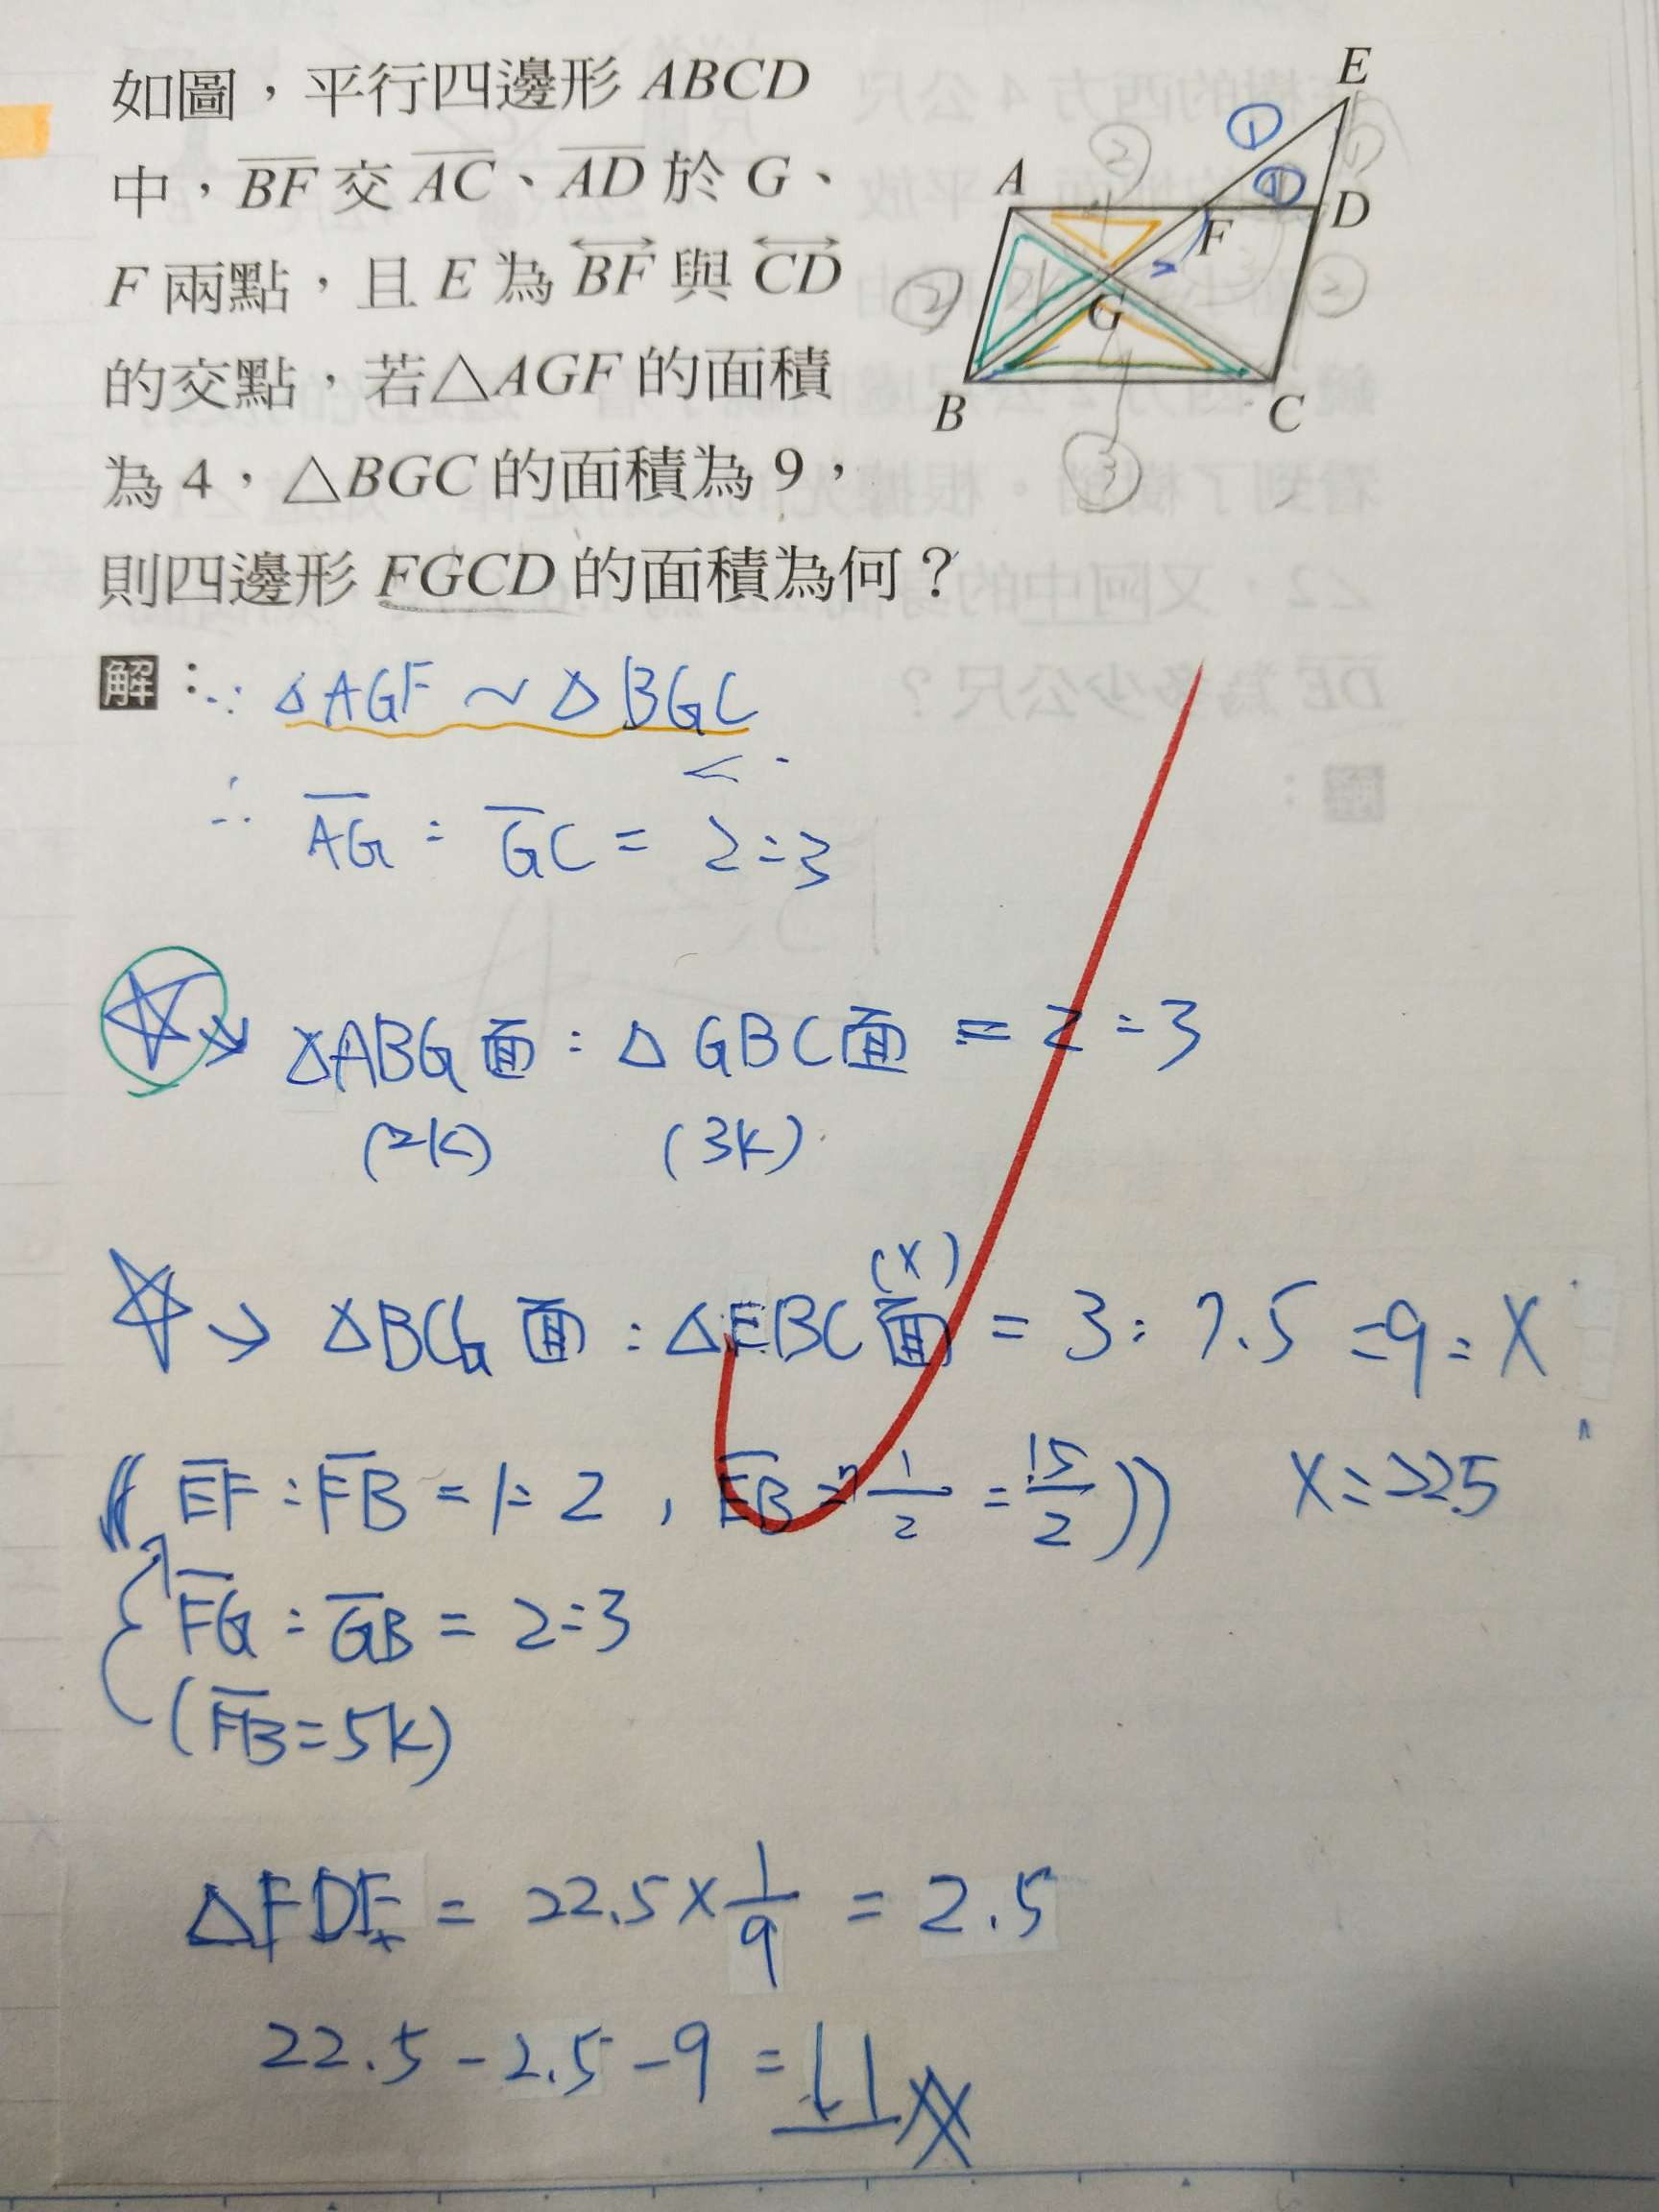 如圖，平行四邊形 ABCD
中，BF 交 AC、AD 於 G、
F 兩點，且 E 為 BF 與 CD
的交點，若△AGF 的面積
為 4，△BGC 的面積為 9，
則四邊形 FGCD 的面積為何？
E
①
②
①
①
A
F
D
②
G
②
B
C
③
解：∵ △AGF ~ △BGC
∴ AG : GC = 2:3
→ △ABG面 : △GBC面 = 2:3
(2k) (3k)
(X)
→ △BCG面 : △EBC面 = 3:7.5 = 9:X
EF : FB = 1:2 , EB = 7 1/2 = 15/2 )) X = 22.5
FG : GB = 2:3
(FB = 5k)
△FDE = 22.5 × 1/9 = 2.5
22.5 - 2.5 - 9 = 11